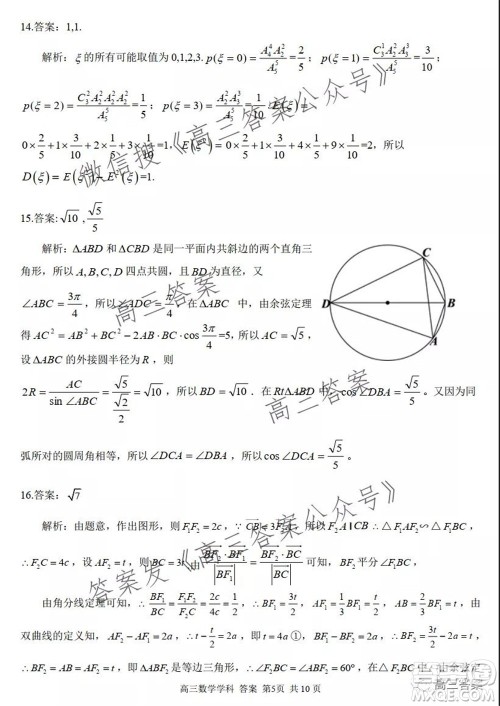 14.答案：1,1.
解析：ξ的所有可能取值为0,1,2,3. p(ξ=0)=A_4^4A_2^2/A_5^5=2/5；p(ξ=1)=C_3^2A_2^2A_2^2/A_5^5=3/10
p(ξ=2)=C_3^2A_2^2A_2^2A_2^2/A_5^5=1/5；p(ξ=3)=A_2^2A_3^3/A_5^5=1/10. E(ξ)=
0×2/5+1×3/10+2×1/5+3×1/10=1，E(ξ²)=0×2/5+1×3/10+4×1/5+9×1/10=2，所以
D(ξ)=E(ξ²)−E²(ξ)=1.
15.答案:√10，√5/5
解析：ΔABD和ΔCBD是同一平面内共斜边的两个直角三
角形，所以A,B,C,D四点共圆，且BD为直径，又
∠ABC=3π/4，所以∠ADC=π/4 在ΔABC中，由余弦定理
得AC²=AB²+BC²−2AB·BC·cos3π/4=5，所以AC=√5，
设ΔABC的外接圆半径为R，则
2R=AC/sin∠ABC=√5/(√2/2)=√10，所以BD=√10，在RtΔABD中，cos∠DBA=√5/5。又因为同
弧所对的圆周角相等，所以∠DCA=∠DBA，所以cos∠DCA=√5/5。
D
C
B
A
16.答案：√7
解析：由题意，作出图形，则F₁F₂=2c，∵
∴F₂C=4c，设AF₂=t，则BC=3t 由
可知，BF₂平分∠F₁BC，
由角分线定理可知，∴BF₁/BC=F₁F₂/F₂C=2c/4c=1/2，∴BF₁=3t/2，∴AF₁=1/3BF₁=t/2，AB=2/3BF₁=t，由
双曲线的定义知，AF₂−AF₁=2a，∴t−t/2=2a，即t=4a ①，BF₁−BF₂=2a，∴3t/2−BF₂=2a，∴BF₂=t，
∴BF₂=AB=AF₂=t，即ΔABF₂是等边三角形，∴∠F₂BC=∠ABF₂=60°，在
高三数学学科 答案 第5页 共10页
微信搜《高三答案公众号》
高三答案
高三答案
答案发《高三答案公众号》
高三答案